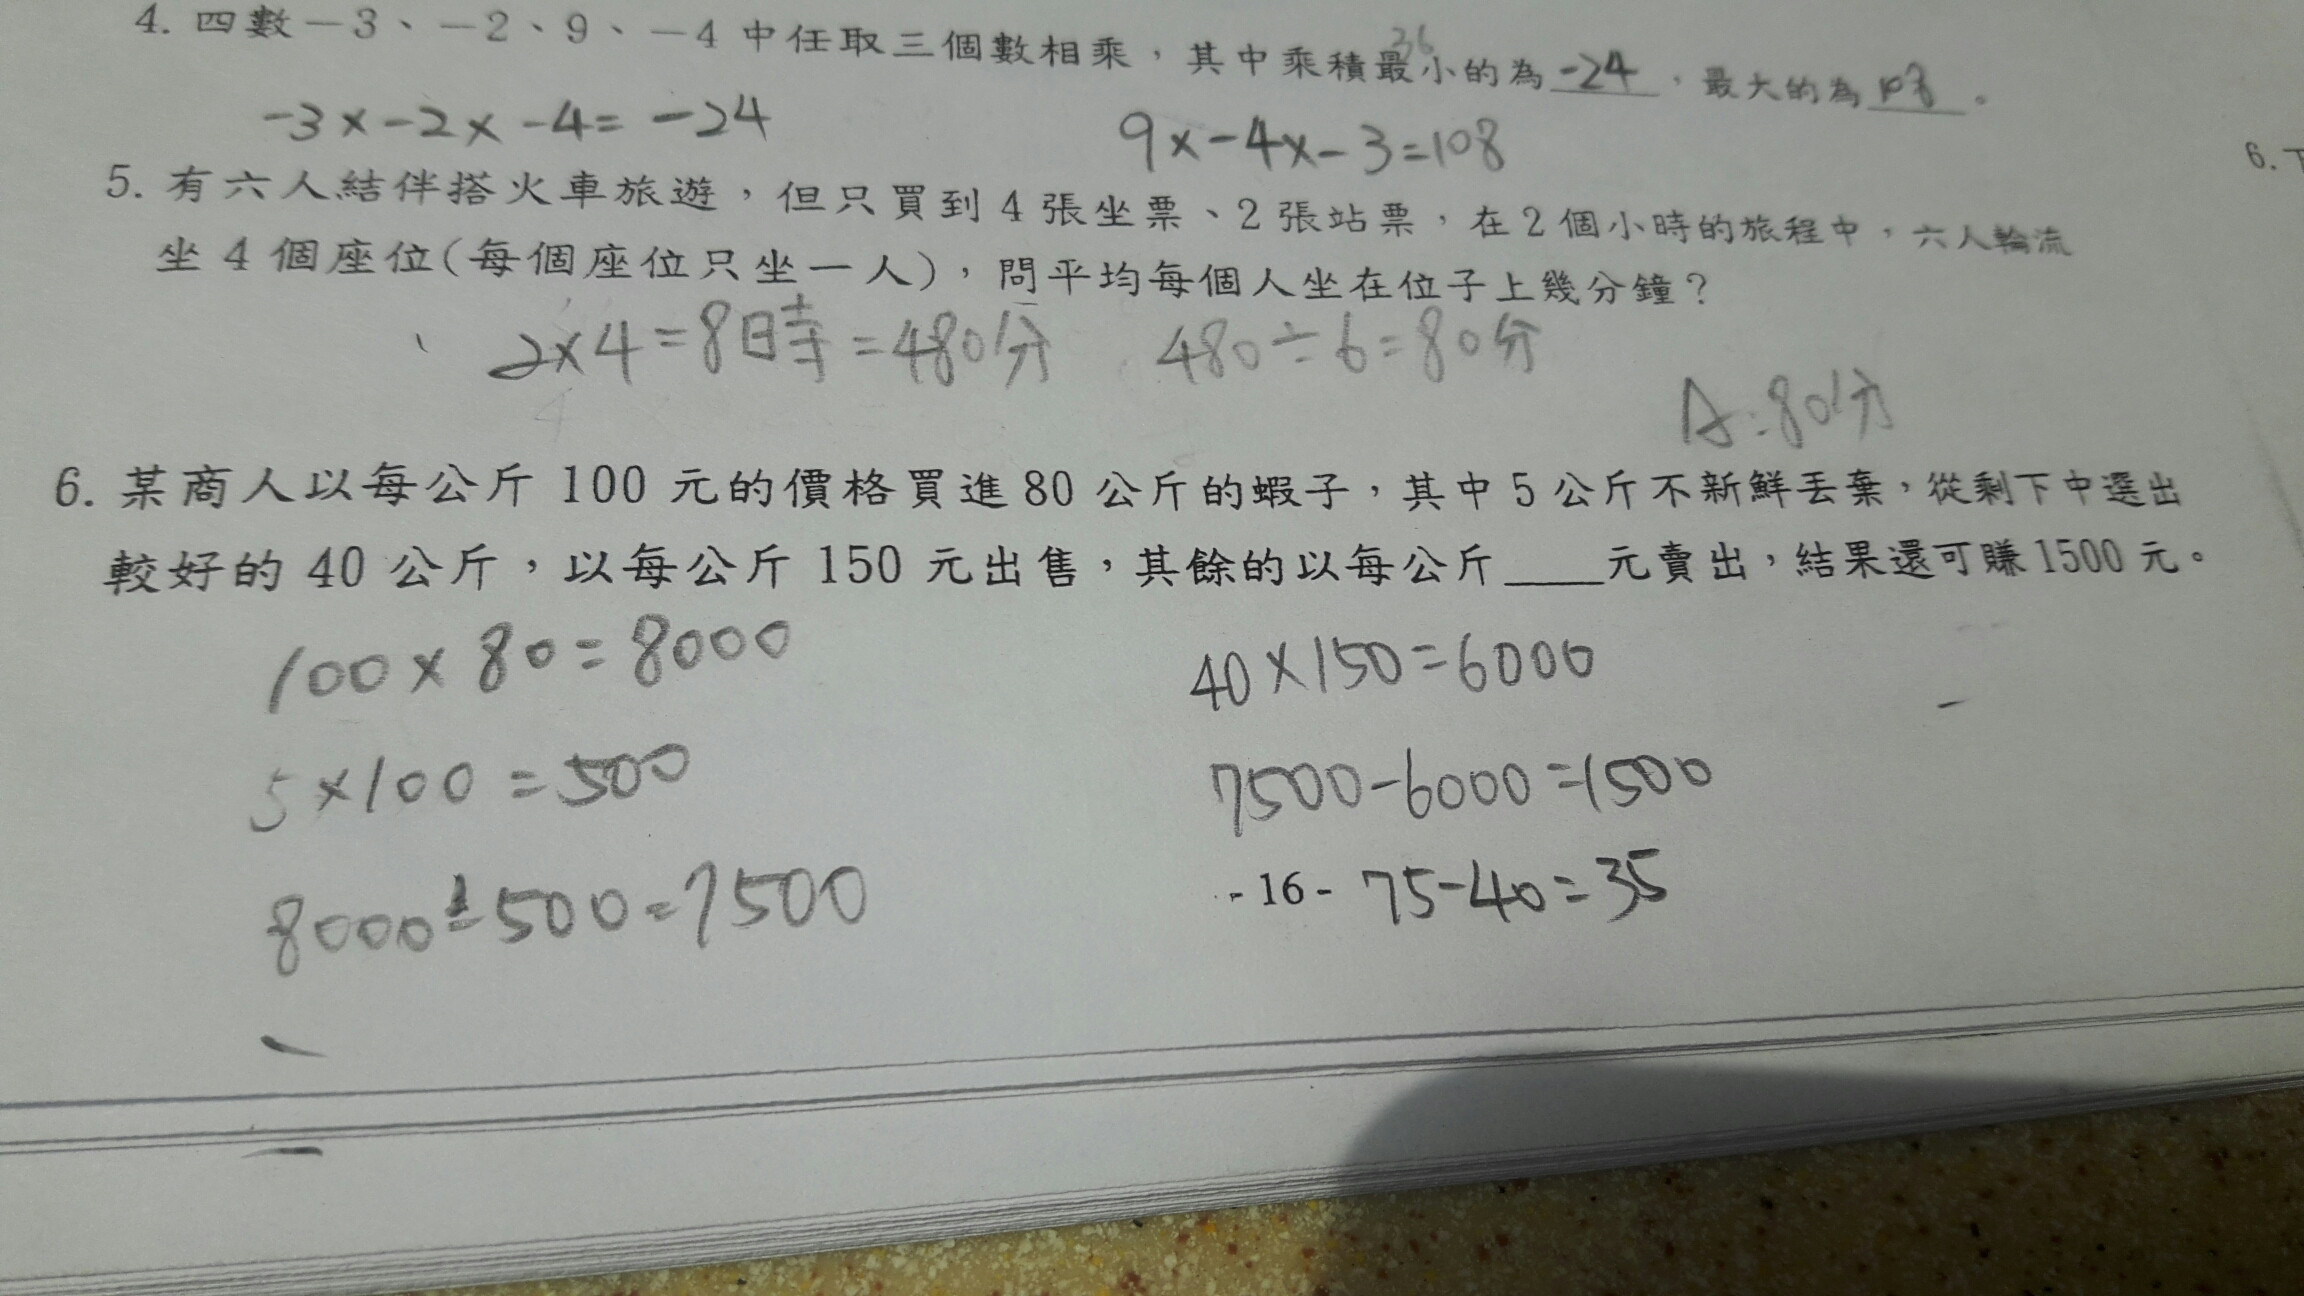 4. 四數－3、－2、9、－4中任取三個數相乘，其中乘積最小的為-24，最大的為108。
36
-3×-2×-4=-24
9×-4×-3=108
5. 有六人結伴搭火車旅遊，但只買到4張坐票、2張站票，在2個小時的旅程中，六人輪流
坐4個座位(每個座位只坐一人)，問平均每個人坐在位子上幾分鐘？
2×4=8時=480分
480÷6=80分
A:80分
6. 某商人以每公斤100元的價格買進80公斤的蝦子，其中5公斤不新鮮丟棄，從剩下中選出
較好的40公斤，以每公斤150元出售，其餘的以每公斤____元賣出，結果還可賺1500元。
100×80=8000
5×100=500
8000-500=7500
40×150=6000
7500-6000=1500
75-40=35
- 16 -
6.